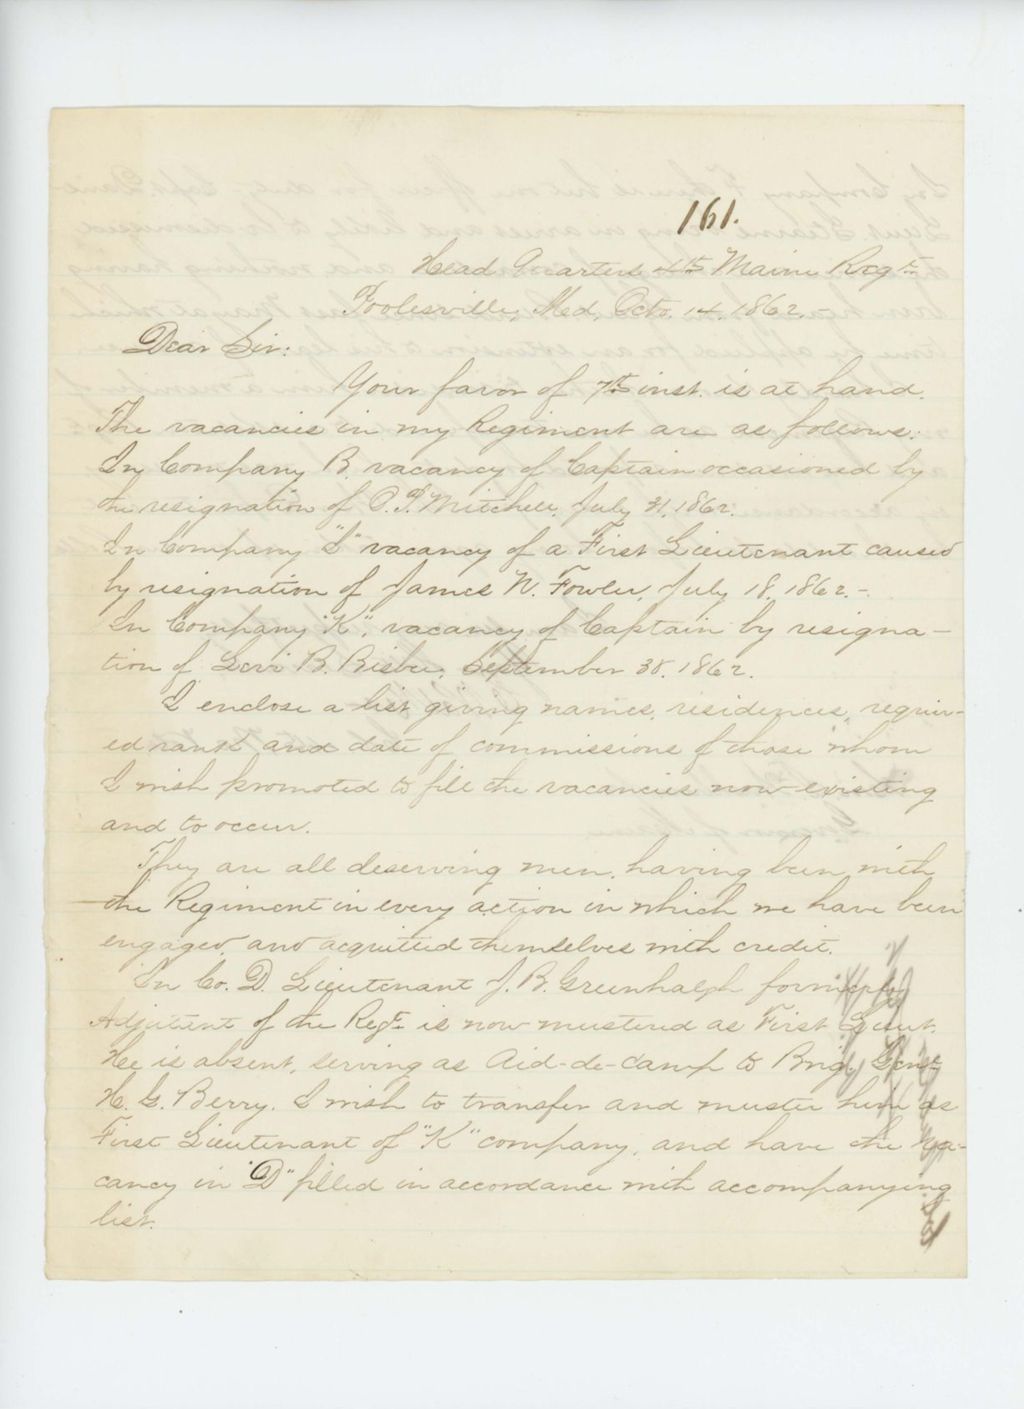 161.
Head Quarters 4th Maine Regt.
Poolesville, Md, Octo. 14, 1862.
Dear Sir:
Your favor of 7th inst. is at hand.
The vacancies in my Regiment are as follows:
In Company B. vacancy of Captain occasioned by
the resignation of O. P. Mitchell, July 21, 1862.
In Company "I" vacancy of a First Lieutenant caused
by resignation of James N. Fowler, July 18, 1862.-.
In Company "K", vacancy of Captain by resigna-
tion of Levi B. Bisbee, September 1862.
I enclose a list giving names, residences, requir-
ed rank and date of commissions of those whom
I wish promoted to fill the vacancies now existing
and to occur.
They are all deserving men, having been with
the Regiment in every action in which we have been
engaged, and acquitted themselves with credit.
In Co. D. Lieutenant J. B. Greenhalgh formerly
Adjutant of the Regt. is now mustered as First Lieut.
He is absent, serving as Aid-de-camp to Brig. Genl.
H. G. Berry. I wish to transfer and muster him as
First Lieutenant of "K" company, and have the va-
cancy in "D" filled in accordance with accompanying
list.